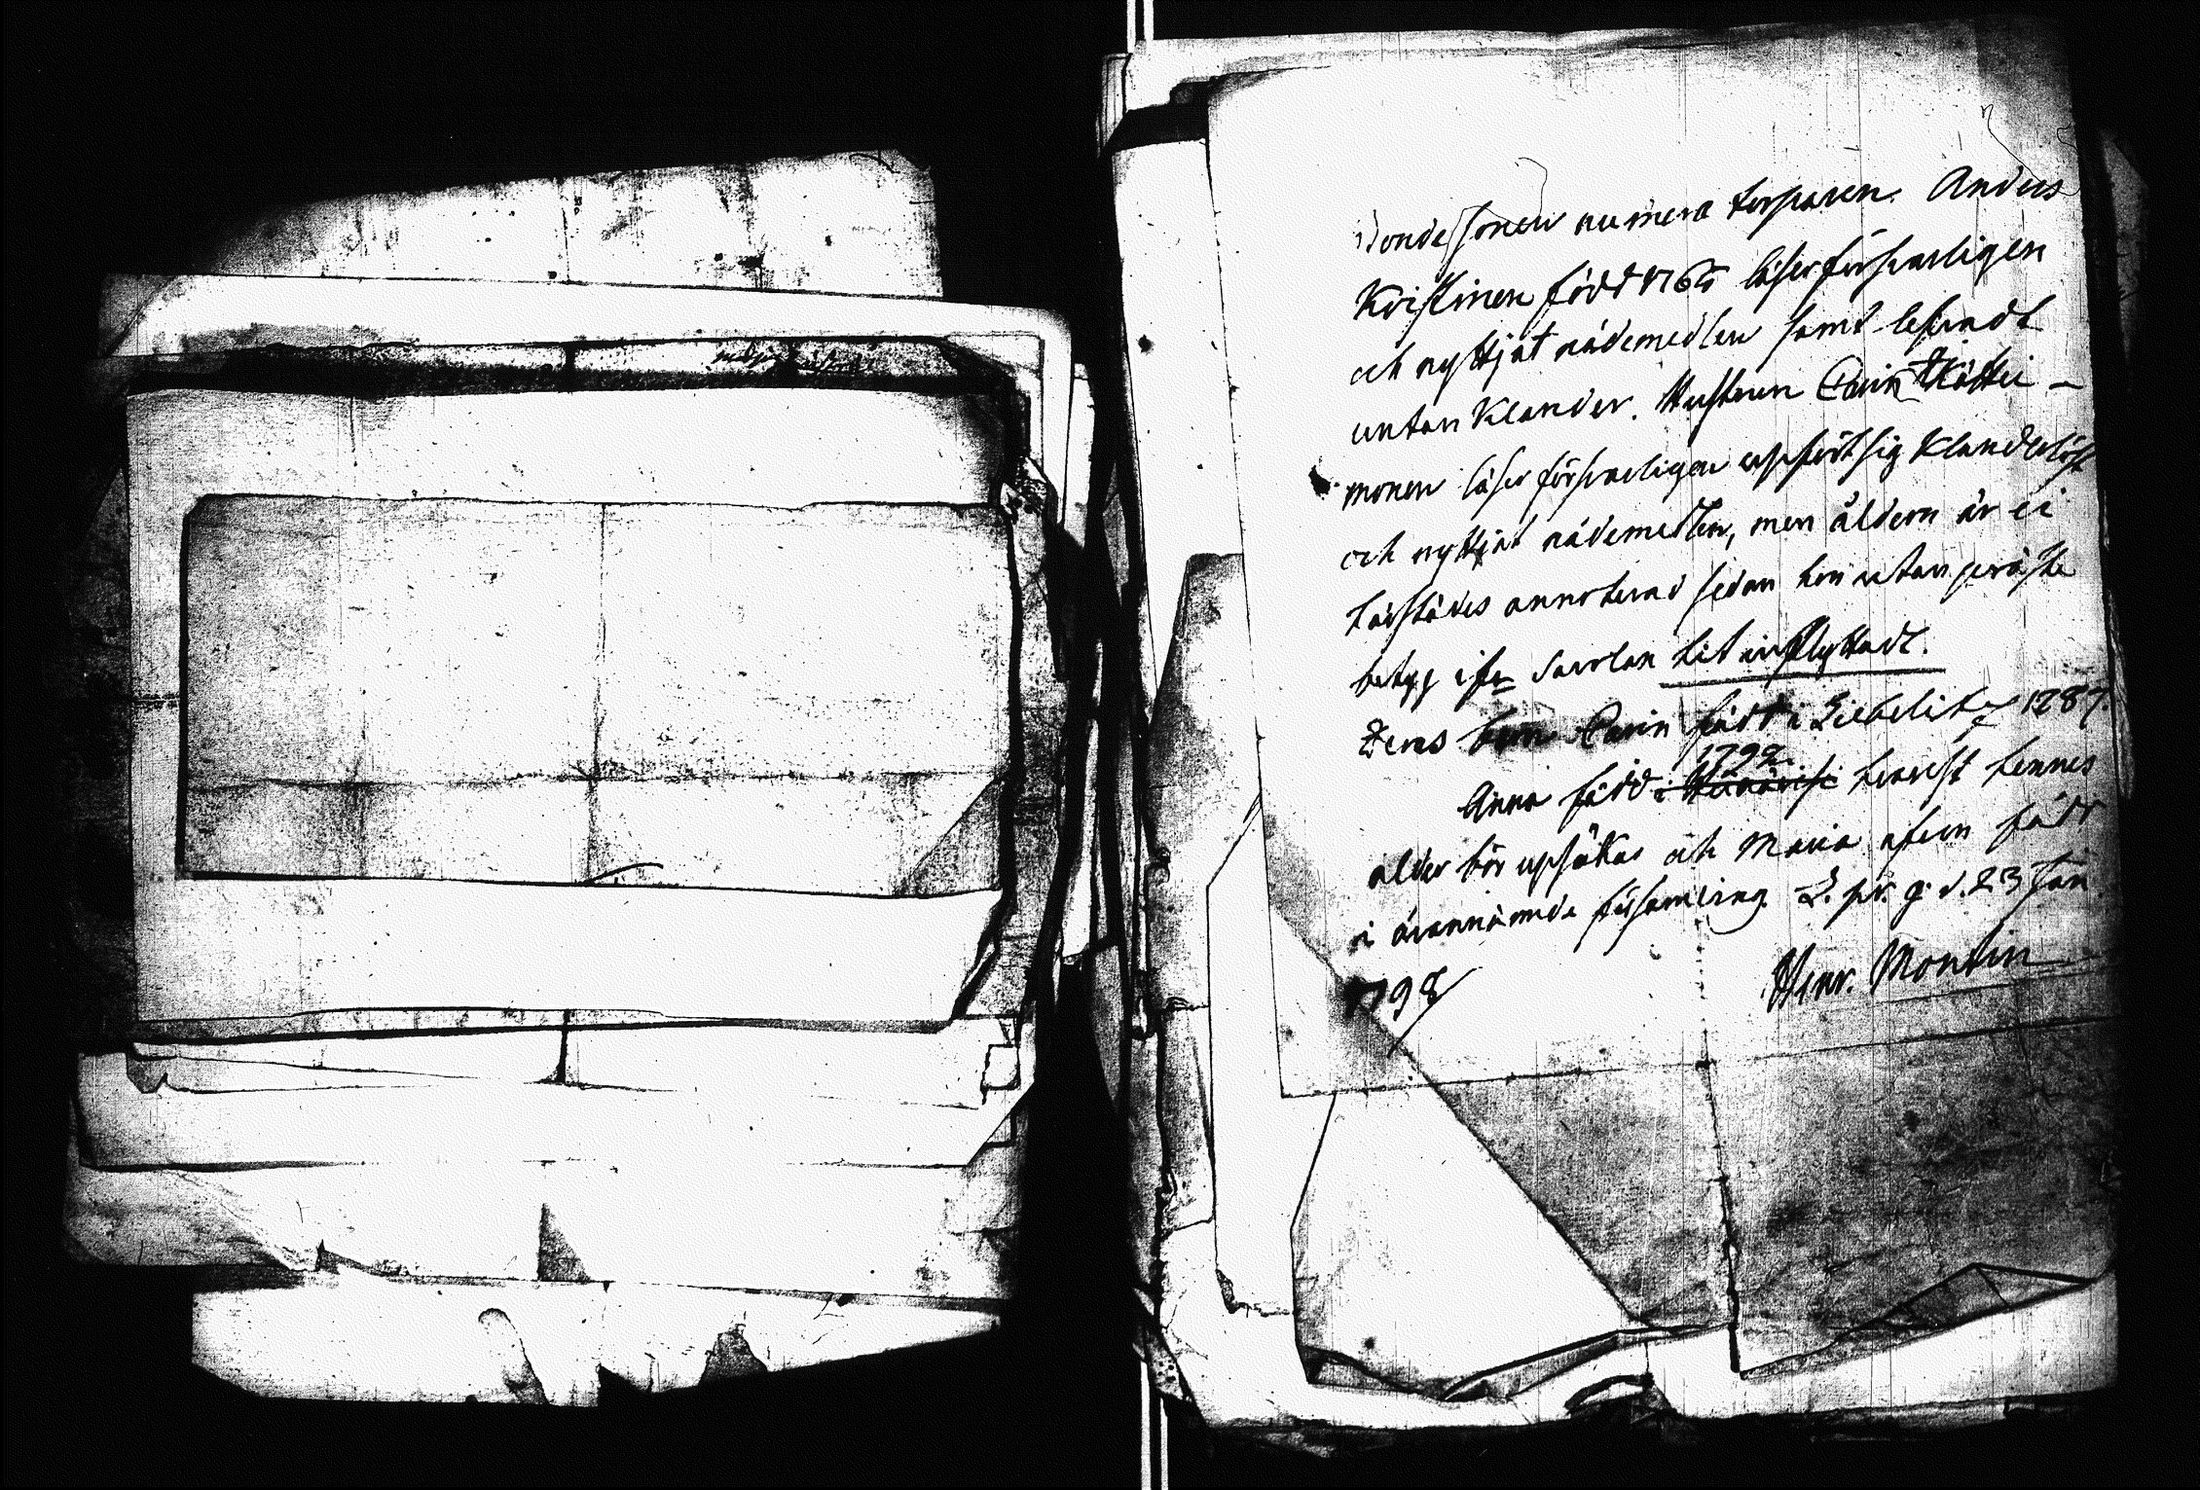 Bondesonen numera torparen Anders
Kristinen född 1765 läser försvarligen
och nyttjat nådemedlen samt lefvadt
utan klander. Hustrun Carin Kötti-
monen läser försvarligen upfördt sig klanderlöst
och nyttjat nådemedlen, men åldern är ei
härstädes annoterad sedan hon utan präste
betyg ifr. Savolax hit inflyttadt.
Deras barn Carin född i Liebelitz 1787.
1792.
Anna född hvarest hennes
ålder bör upsökas och Maria äfven född
i ofvannämnde församling. L. pr. g. d. 23 Jan.
1798
Henr. Montin